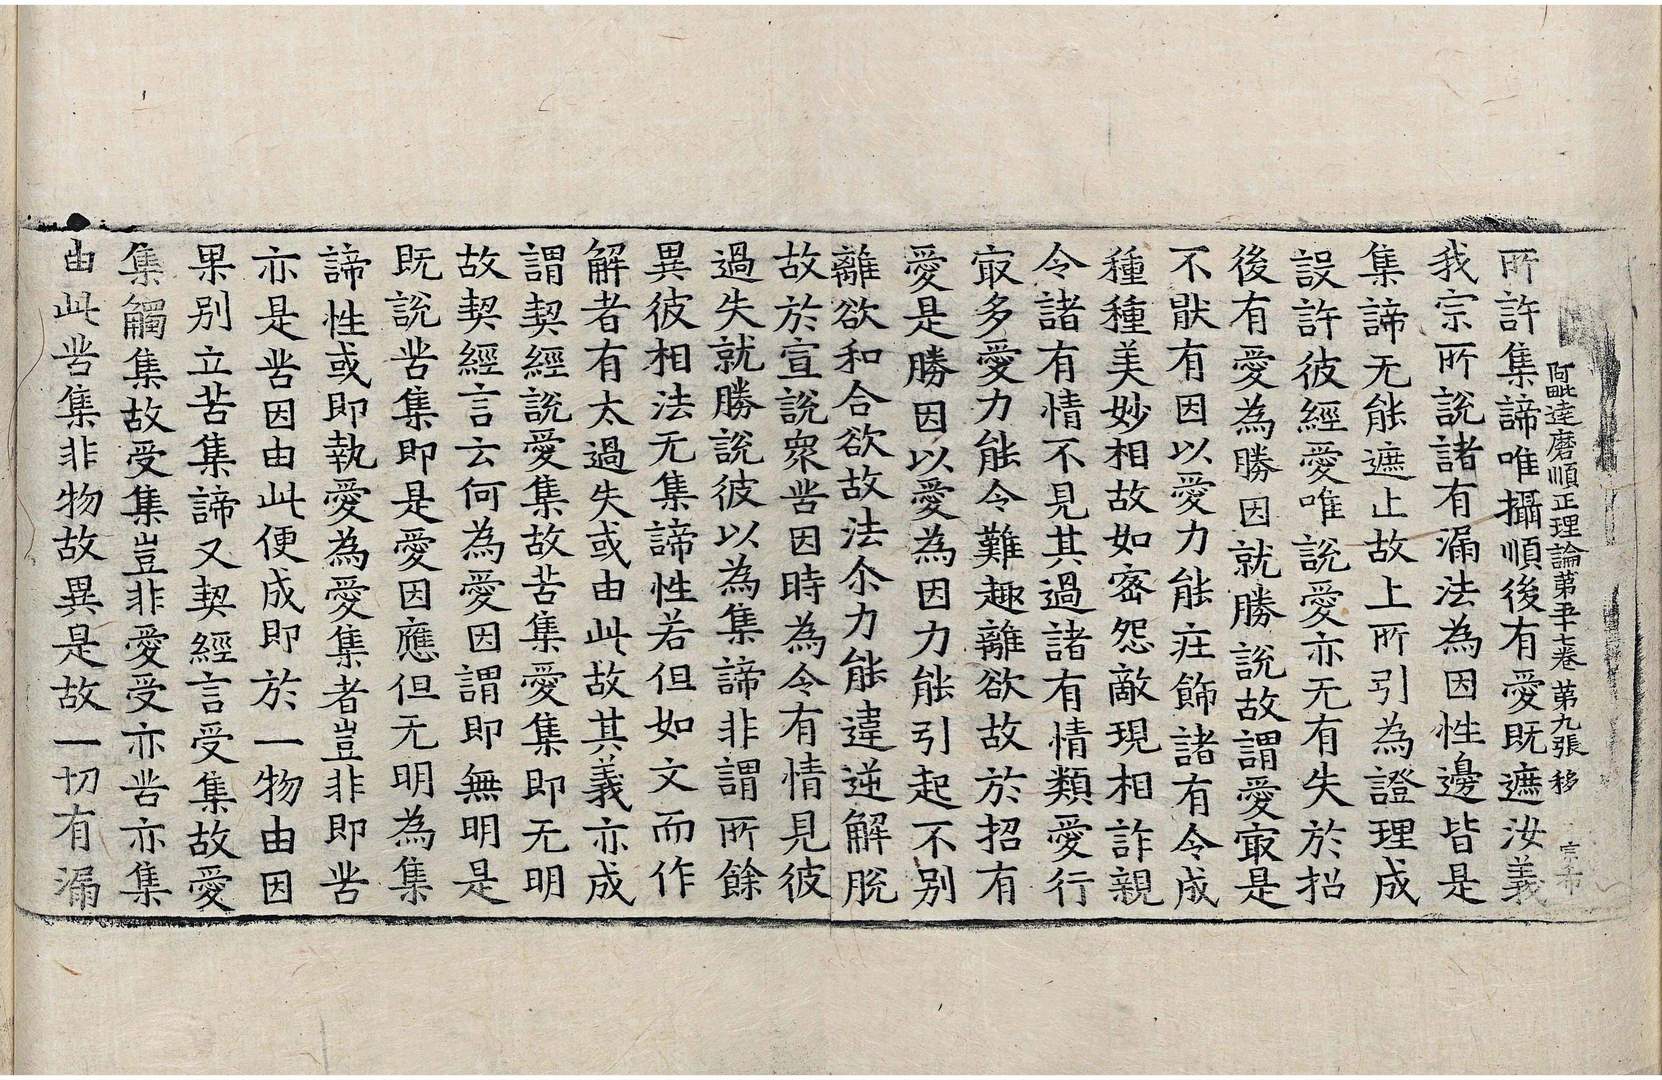 阿毗達磨順正理論第五十七卷 第九張 移 宗希
所許集諦唯攝順後有愛旣遮汝義
我宗所說諸有漏法為因性邊皆是
集諦无能遮止故上所引為證理成
設許彼經愛唯說愛亦无有失於招
後有愛為勝因就勝說故謂愛㝡是
不猒有因以愛力能疘飾諸有令成
種種美妙相故如密怨敵現相詐親
令諸有情不見其過諸有情類愛行
㝡多愛力能令難趣離欲故於招有
愛是勝因以愛為因力能引起不别
離欲和合欲故法尒力能違逆解脫
故於宣說衆苦因時為令有情見彼
過失就勝說彼以為集諦非謂所餘
異彼相法无集諦性若但如文而作
解者有太過失或由此故其義亦成
謂契經說愛集故苦集愛集即无明
故契經言云何為愛因謂即無明是
旣說苦集即是愛因應但无明為集
諦性或即執愛為愛集者豈非即苦
亦是苦因由此便成即於一物由因
果别立苦集諦又契經言受集故愛
集觸集故受集豈非愛受亦苦亦集
由此苦集非物故異是故一切有漏